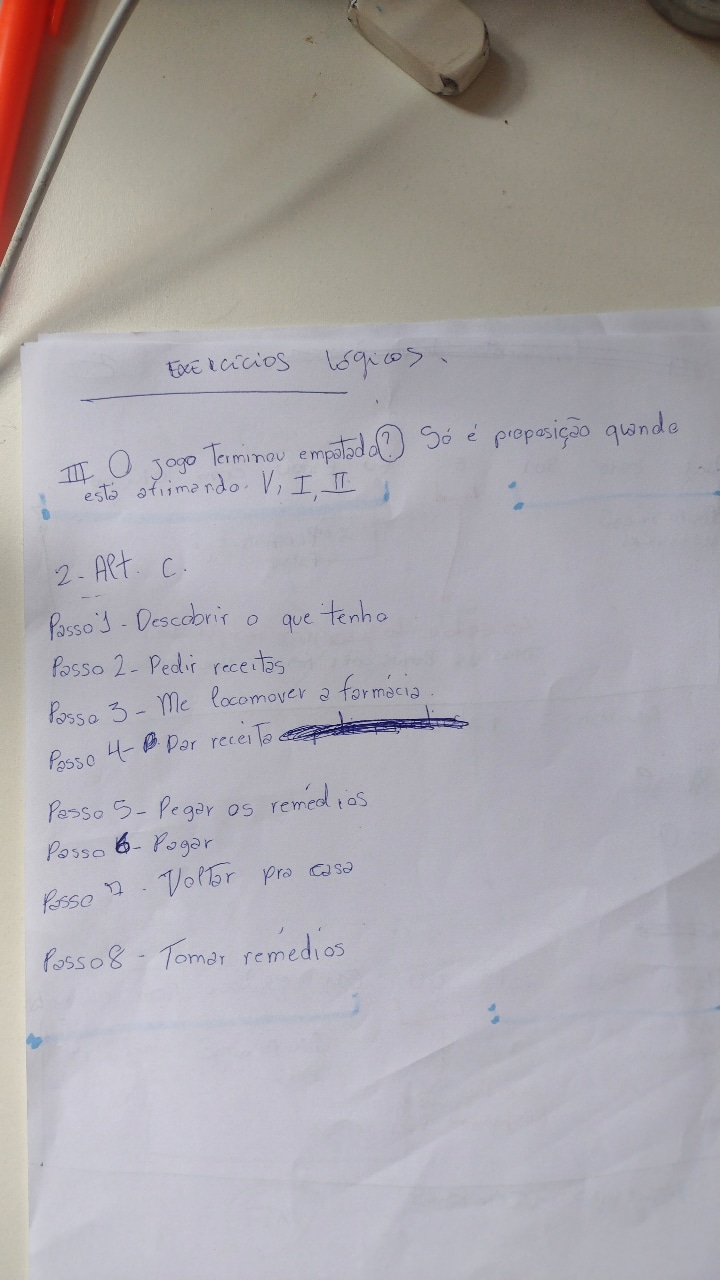 EXERCÍCIOS lógicos.
III O jogo Terminou empatado? Só é proposição quando
está afirmando. V, I, II
2 - Alt. C.
Passo 1 - Descobrir o que tenho
Passo 2 - Pedir receitas
Passo 3 - Me locomover a farmácia.
Passo 4 - Dar receita
Passo 5 - Pegar os remédios
Passo 6 - Pagar
Passo 7 - Voltar pra casa
Passo 8 - Tomar remédios